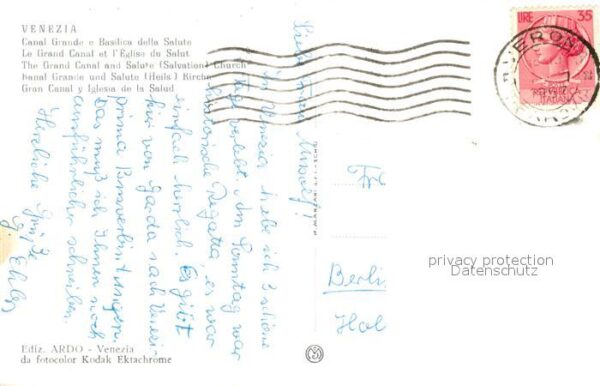 VENEZIA
Canal Grande e Basilica della Salute
Le Grand Canal et l'Eglise du Salut
The Grand Canal and Salute (Salvation) Church
Kanal Grande und Salute (Heils) Kirche
Gran Canal y Iglesia de la Salud
Liebe Frau
In Venezia habe ich 3 schöne
Tage verlebt. Am Sonntag war
historische Regatta, es war
einfach herrlich. Es gibt
hier von Garda nach Venezi-
prima Busverbindungen.
Das muß ich Ihnen noch
ausführlicher schreiben.
Herzliche Grüße
Ediz. ARDO - Venezia
da fotocolor Kodak Ektachrome
LIRE 35
ITALIANA
VERONA
Berli
Hol
privacy protection
Datenschutz